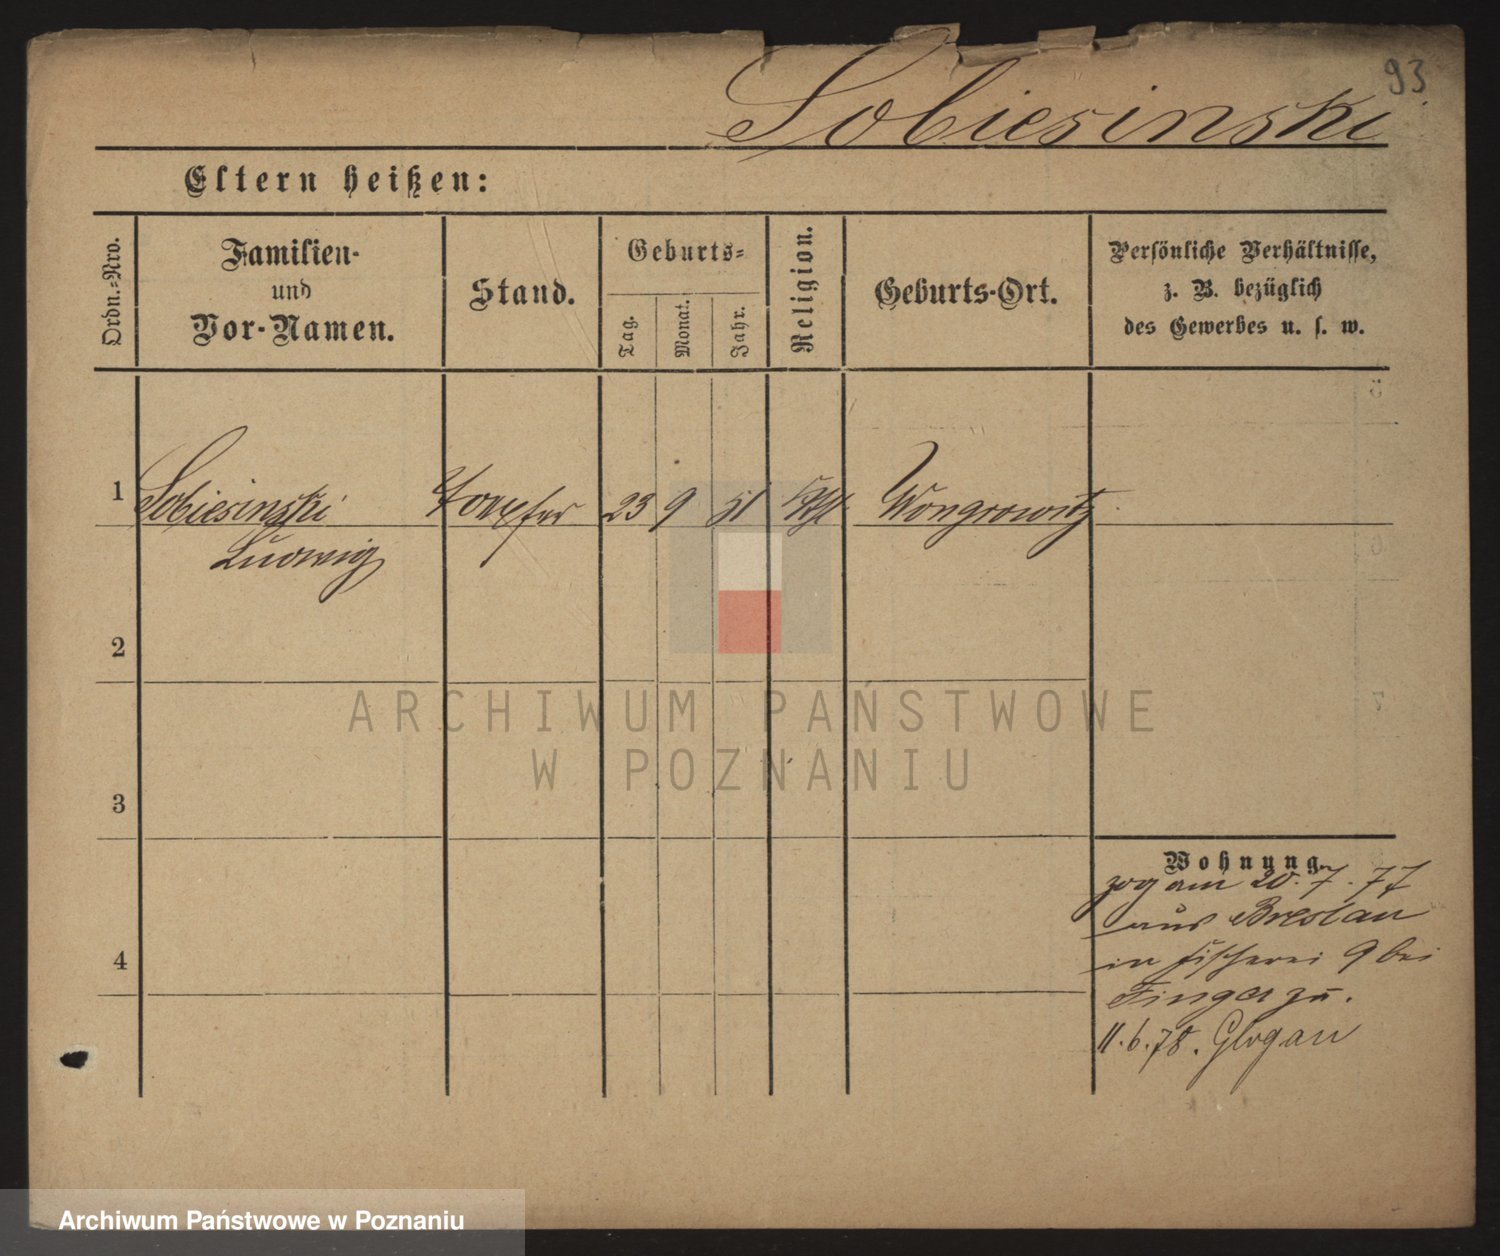 93
Sobiesinski
Eltern heißen:
Ordn.-Nro.
Familien-
und
Vor-Namen.
Stand.
Geburts-
Tag.
Monat.
Jahr.
Religion.
Geburts-Ort.
Persönliche Verhältnisse,
z. B. bezüglich
des Gewerbes u. s. w.
1
Sobiesinski
Ludwig
Toepfer
23
9
51
Kth
Wongrowitz
2
3
4
Wohnung
zog am 20.7.77
aus Breslau
in Fischerei 9 bei
Finger zu.
11.6.78. Glogau
ARCHIWUM PAŃSTWOWE
W POZNANIU
Archiwum Państwowe w Poznaniu